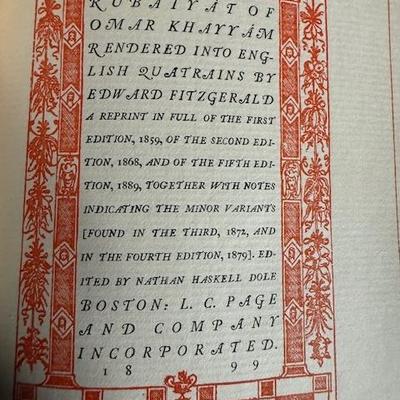 RUBÁIYÁT OF
OMAR KHAYYÁM
RENDERED INTO ENG-
LISH QUATRAINS BY
EDWARD FITZGERALD
A REPRINT IN FULL OF THE FIRST
EDITION, 1859, OF THE SECOND EDI-
TION, 1868, AND OF THE FIFTH EDI-
TION, 1889, TOGETHER WITH NOTES
INDICATING THE MINOR VARIANTS
[FOUND IN THE THIRD, 1872, AND
IN THE FOURTH EDITION, 1879]. ED-
ITED BY NATHAN HASKELL DOLE
BOSTON: L. C. PAGE
AND COMPANY
INCORPORATED.
18 99